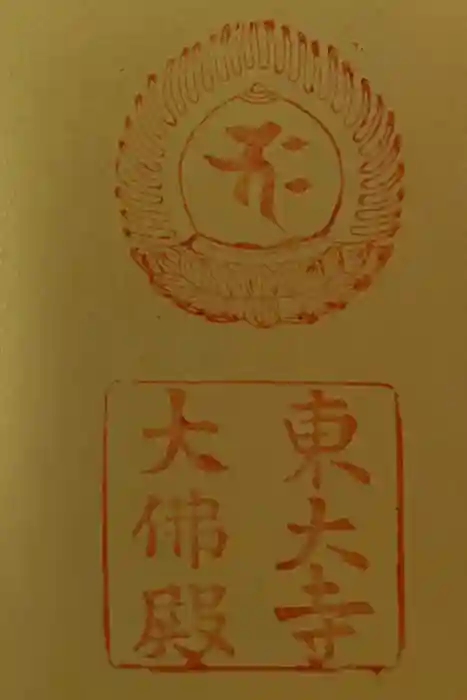 東大寺
大佛殿